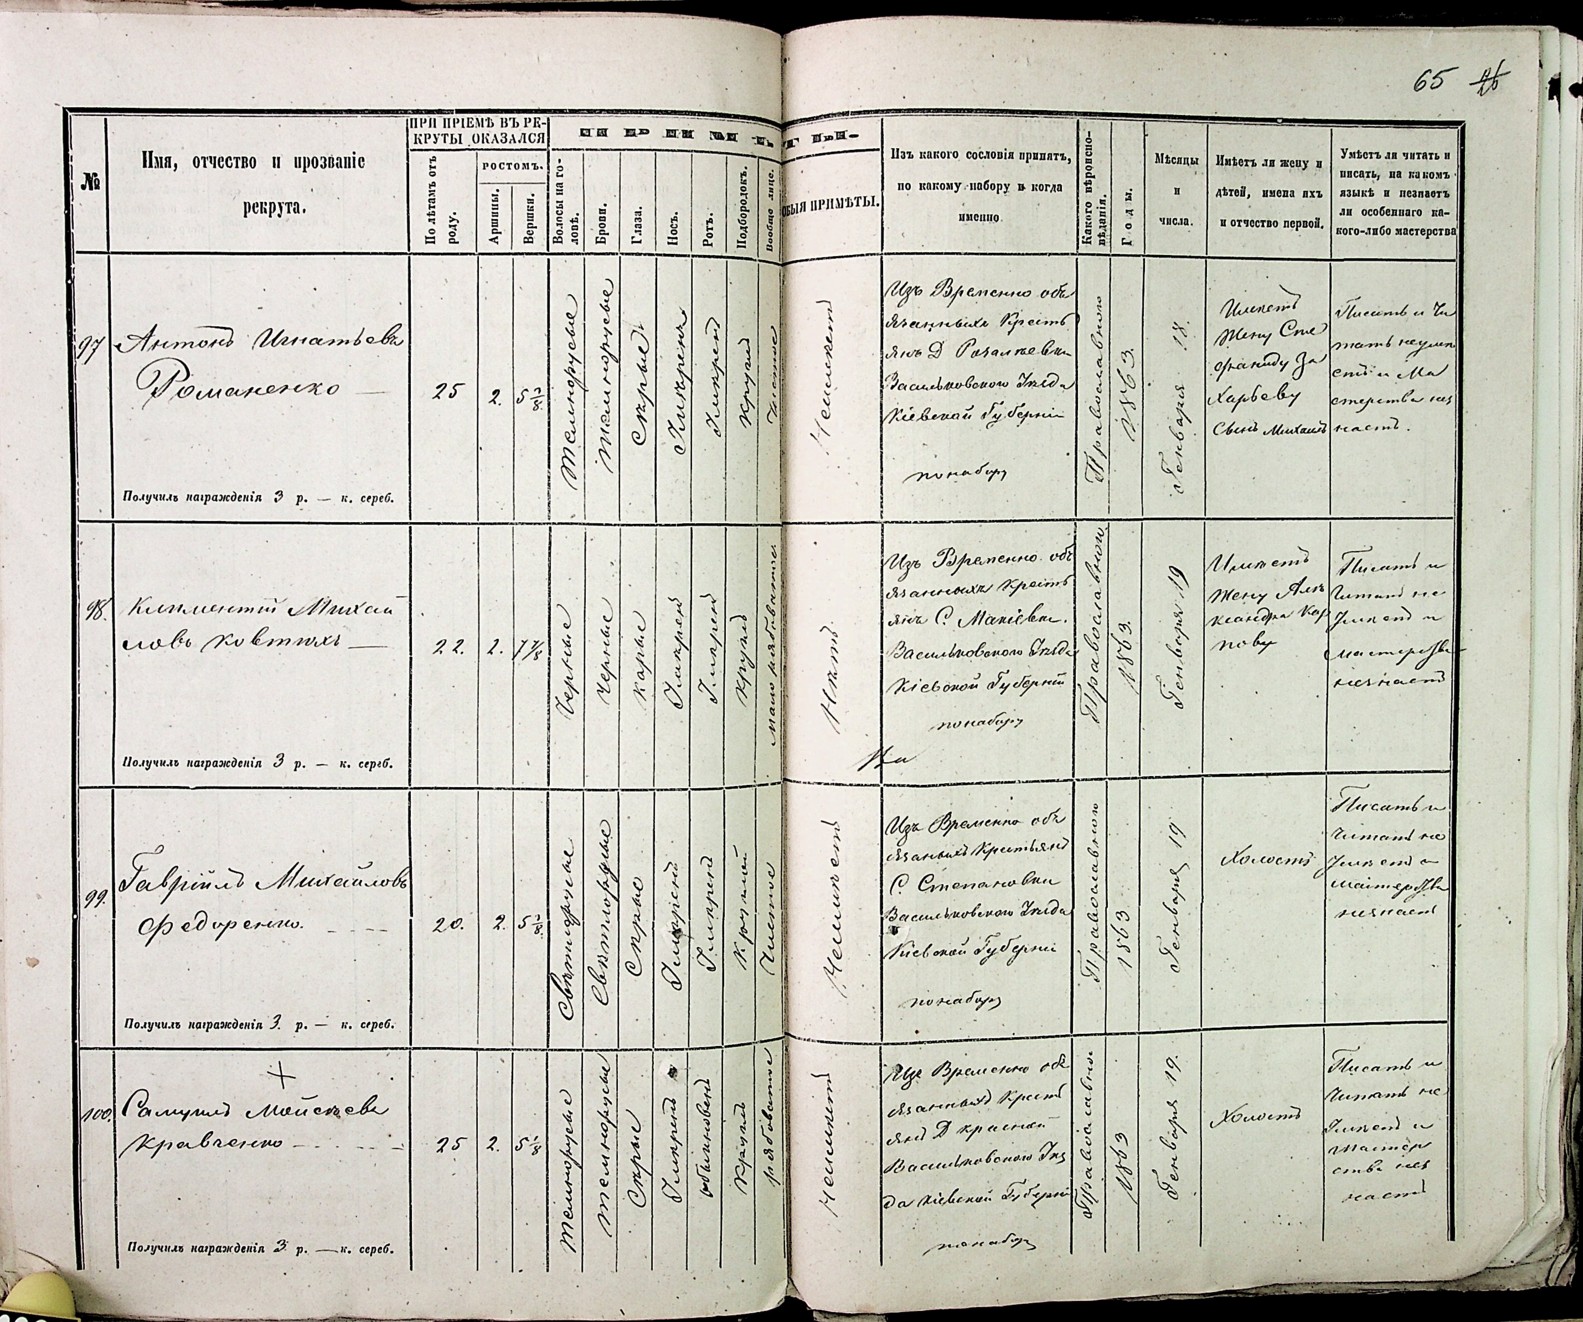 65 26
№
Имя, отчество и прозваніе
рекрута.
ПРИ ПРІЕМѢ ВЪ РЕ-
КРУТЫ ОКАЗАЛСЯ
По лѣтамъ отъ роду.
ростомъ.
Аршины.
Вершки.
Волосы на головѣ.
Брови.
Глаза.
Носъ.
Ротъ.
Подбородокъ.
Вообще лице.
ОБЫЯ ПРИМѢТЫ.
Изъ какого сословія принятъ,
по какому набору и когда
именно
Какого вѣроиспо-
вѣданія.
Годы.
Мѣсяцы
и
числа.
Имѣетъ ли жену и
дѣтей, имена ихъ
и отчество первой.
Умѣетъ ли читать и
писать, на какомъ
языкѣ и незнаетъ
ли особеннаго ка-
кого-либо мастерства
97
Антонъ Игнатьевъ
Романенко
25
2.
5 1/8
Темнорусые
Темнорусые
Сѣрые
Умѣренъ
Умѣрен
Кругл
Чистое
Неимѣет
Изъ Временно обя
занныхъ Кресть
янъ Д
Васильковского Уѣзда
Кіевской Губерніи
по набору
Православного
1863.
Генваря 18.
Имѣетъ
Жену Сте
фаниду За
харьеву
Сынъ Михаилъ
Писать и Чи
тать неумѣ
етъ и Ма
стерства нез
наетъ.
Получилъ награжденія 3 р. — к. сереб.
98.
Климентій Михай
ловъ Ковтюхъ
22.
2.
Черные
Черные
Карые
Умѣрен
Умѣрен
Кругл
мало рябоватое
Нѣтъ
Изъ Временно обя
занныхъ Кресть
янъ С. Макіевки.
Васильковского Уѣзда
Кіевской Губерніи
по набору
Православного
1863.
Генваря 19
Имѣетъ
Жену Алек
сандра Кар
пову
Писать и
Читать не
Умѣет и
мастерства
незнает
Получилъ награжденія 3 р. — к. сереб.
99.
Гавріилъ Михайловъ
Федоренко.
20.
2.
5 1/8
Свѣтлорусые
Свѣтлорусые
Сѣрые
Умѣрен
Умѣрен
Круглой
Чистое
Неимѣет
Изъ Временно обя
занныхъ Крестьянъ
С. Степановки
Васильковского Уѣзда
Кіевской Губерніи
по набору
Православного
1863
Генваря 19
Холостъ
Писать и
Читать не
Умѣет и
мастерства
незнает
Получилъ награжденія 3. р. — к. сереб.
100.
Самуилъ Мойсѣевъ
Кравченко
25
2.
5 1/8
Темнорусые
Темнорусые
Сѣрые
Умѣренъ
обыкновен
Круглъ
рябоватое
Неимѣет
Изъ Временно обя
занныхъ Кресть
янъ Д Красной
Васильковского Уѣз
да Кіевской Губерніи
по набору
Православного
1863
Генваря 19.
Холостъ
Писать и
Читать не
Умѣет и
Мастер
ства нез
наетъ
Получилъ награжденія 3 р. — к. сереб.